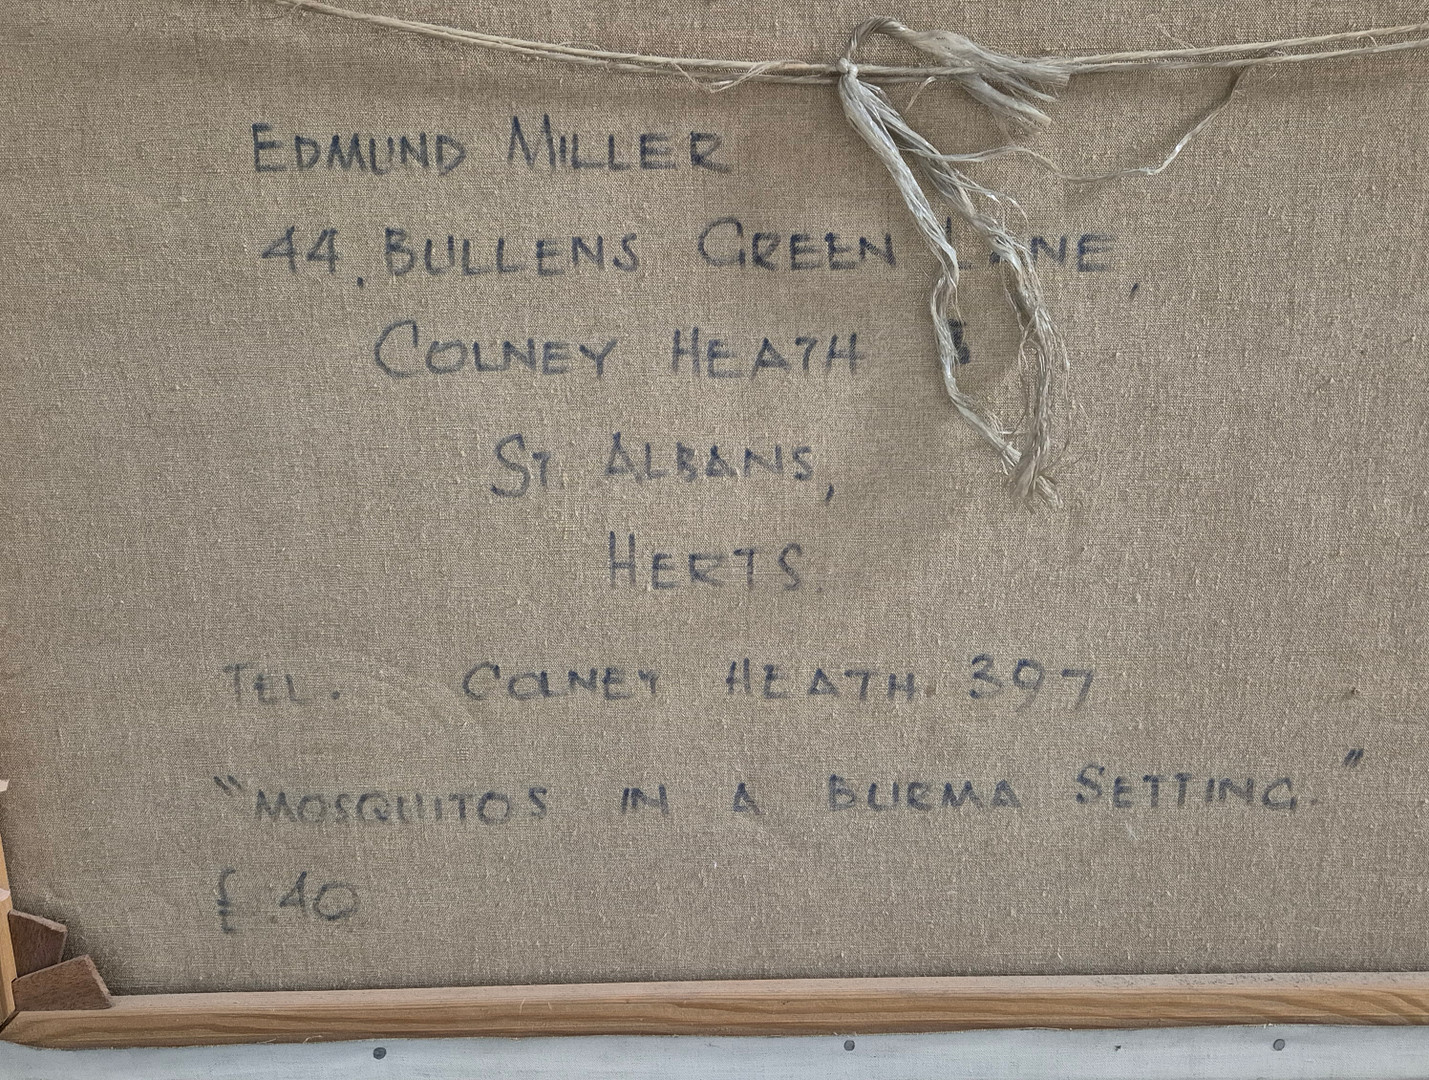 EDMUND MILLER
44, BULLENS GREEN LANE,
COLNEY HEATH
ST. ALBANS,
HERTS.
TEL. COLNEY HEATH. 397
"MOSQUITOS IN A BURMA SETTING."
£40